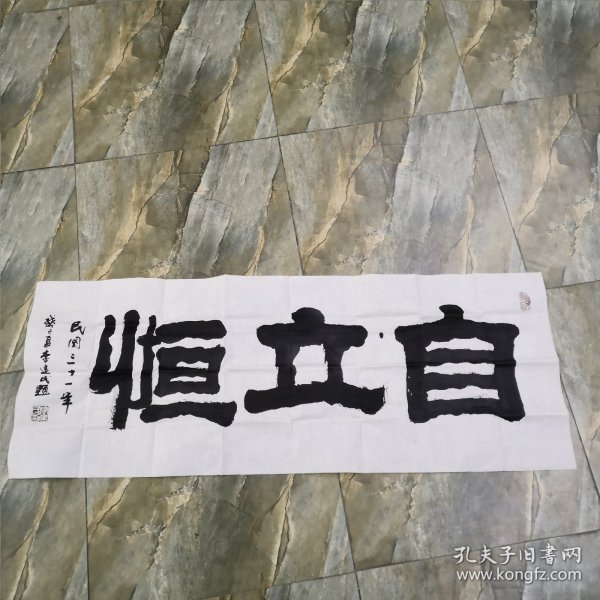 自立恒
民国三十一年
癸巳夏李建民题
孔夫子旧书网
www.kongfz.com